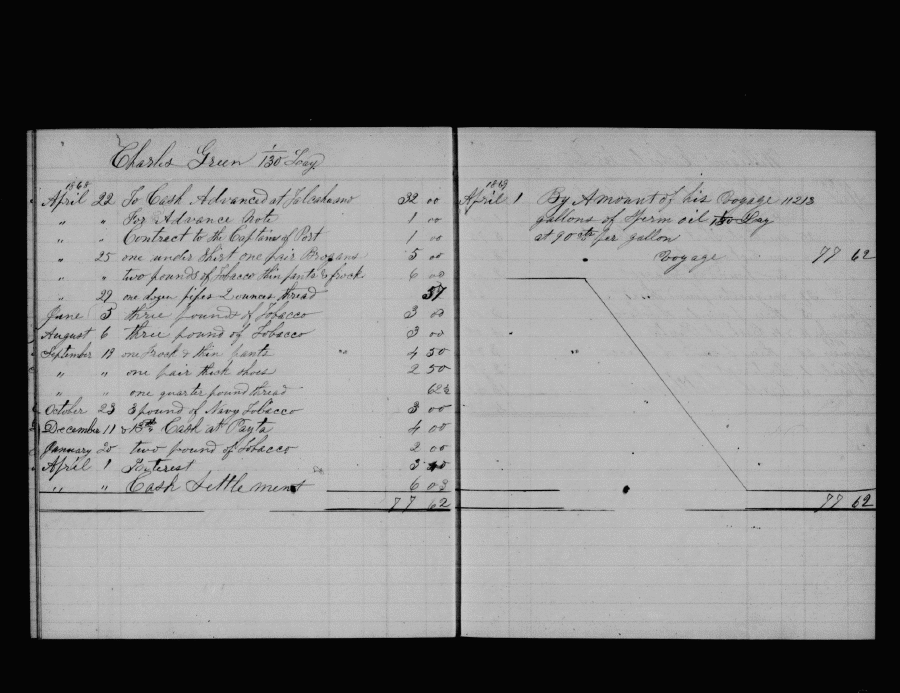 Charles Green 1/130 Lay
1868
April 22 To Cash Advanced at Talcahuano 32 00
" " For Advance Note 1 00
" " Contract to the Captain of Port 1 00
" 25 one under Shirt one pair Brogans 5 00
" " two pounds of Tobacco thin pants & frock 6 00
" 29 one dozen pipes 2 ounces thread 57
June 5 three pounds of Tobacco 3 00
August 6 three pound of Tobacco 3 00
September 13 one frock & thin pants " 4 50
" " one pair thick shoes 2 50
" " one quarter pound thread 62½
October 23 3 pound of Navy Tobacco 3 00
December 11 & 13th Cash at Payta 4 00
January 20 two pound of Tobacco 2 00
April 1 Interest 3
" " Cash Settlement 6 03
77 62
1869
April 1 By Amount of his Voyage 11213
gallons of Sperm oil 1/130 Lay
at 90 cts per gallon
Voyage 77 62
77 62